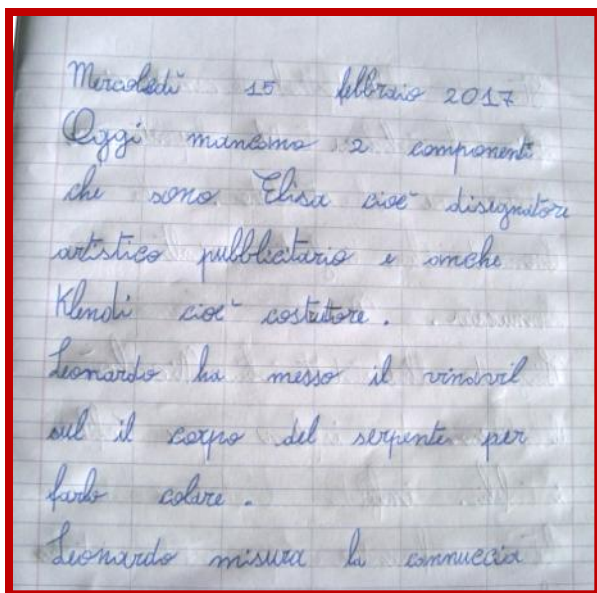 Mercoledì 15 febbraio 2017
Oggi mancano 2 componenti
che sono Elisa cioè disegnatore
artistico pubblicitario e anche
Klendi cioè costruttore.
Leonardo ha messo il vinavil
sul il corpo del serpente per
farlo colare.
Leonardo misura la cannuccia